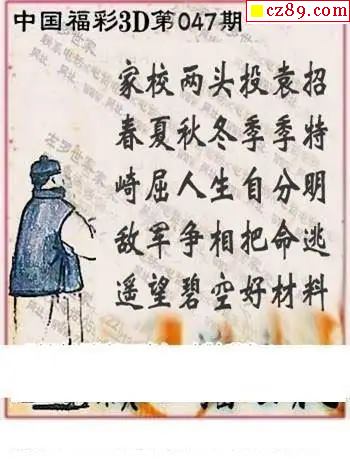 cz89.com
中国福彩3D第047期
家校两头投袁招
春夏秋冬季季特
崎屈人生自分明
敌军争相把命逃
遥望碧空好材料